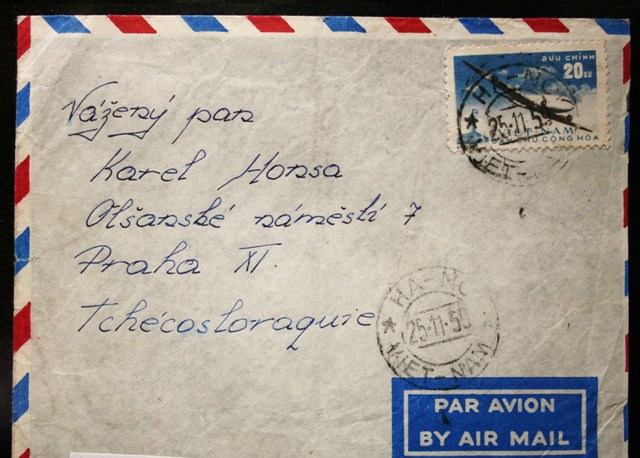 BƯU CHÍNH
20 XU
HA-NOI
25-11-59
VIET-NAM
DÂN CHỦ CỘNG HÒA
VIET-NAM
Vážený pan
Karel Honsa
Olšanské náměstí 7
Praha XI.
Tchécoslovaquie
HA-NOI
25-11-59
VIET-NAM
PAR AVION
BY AIR MAIL